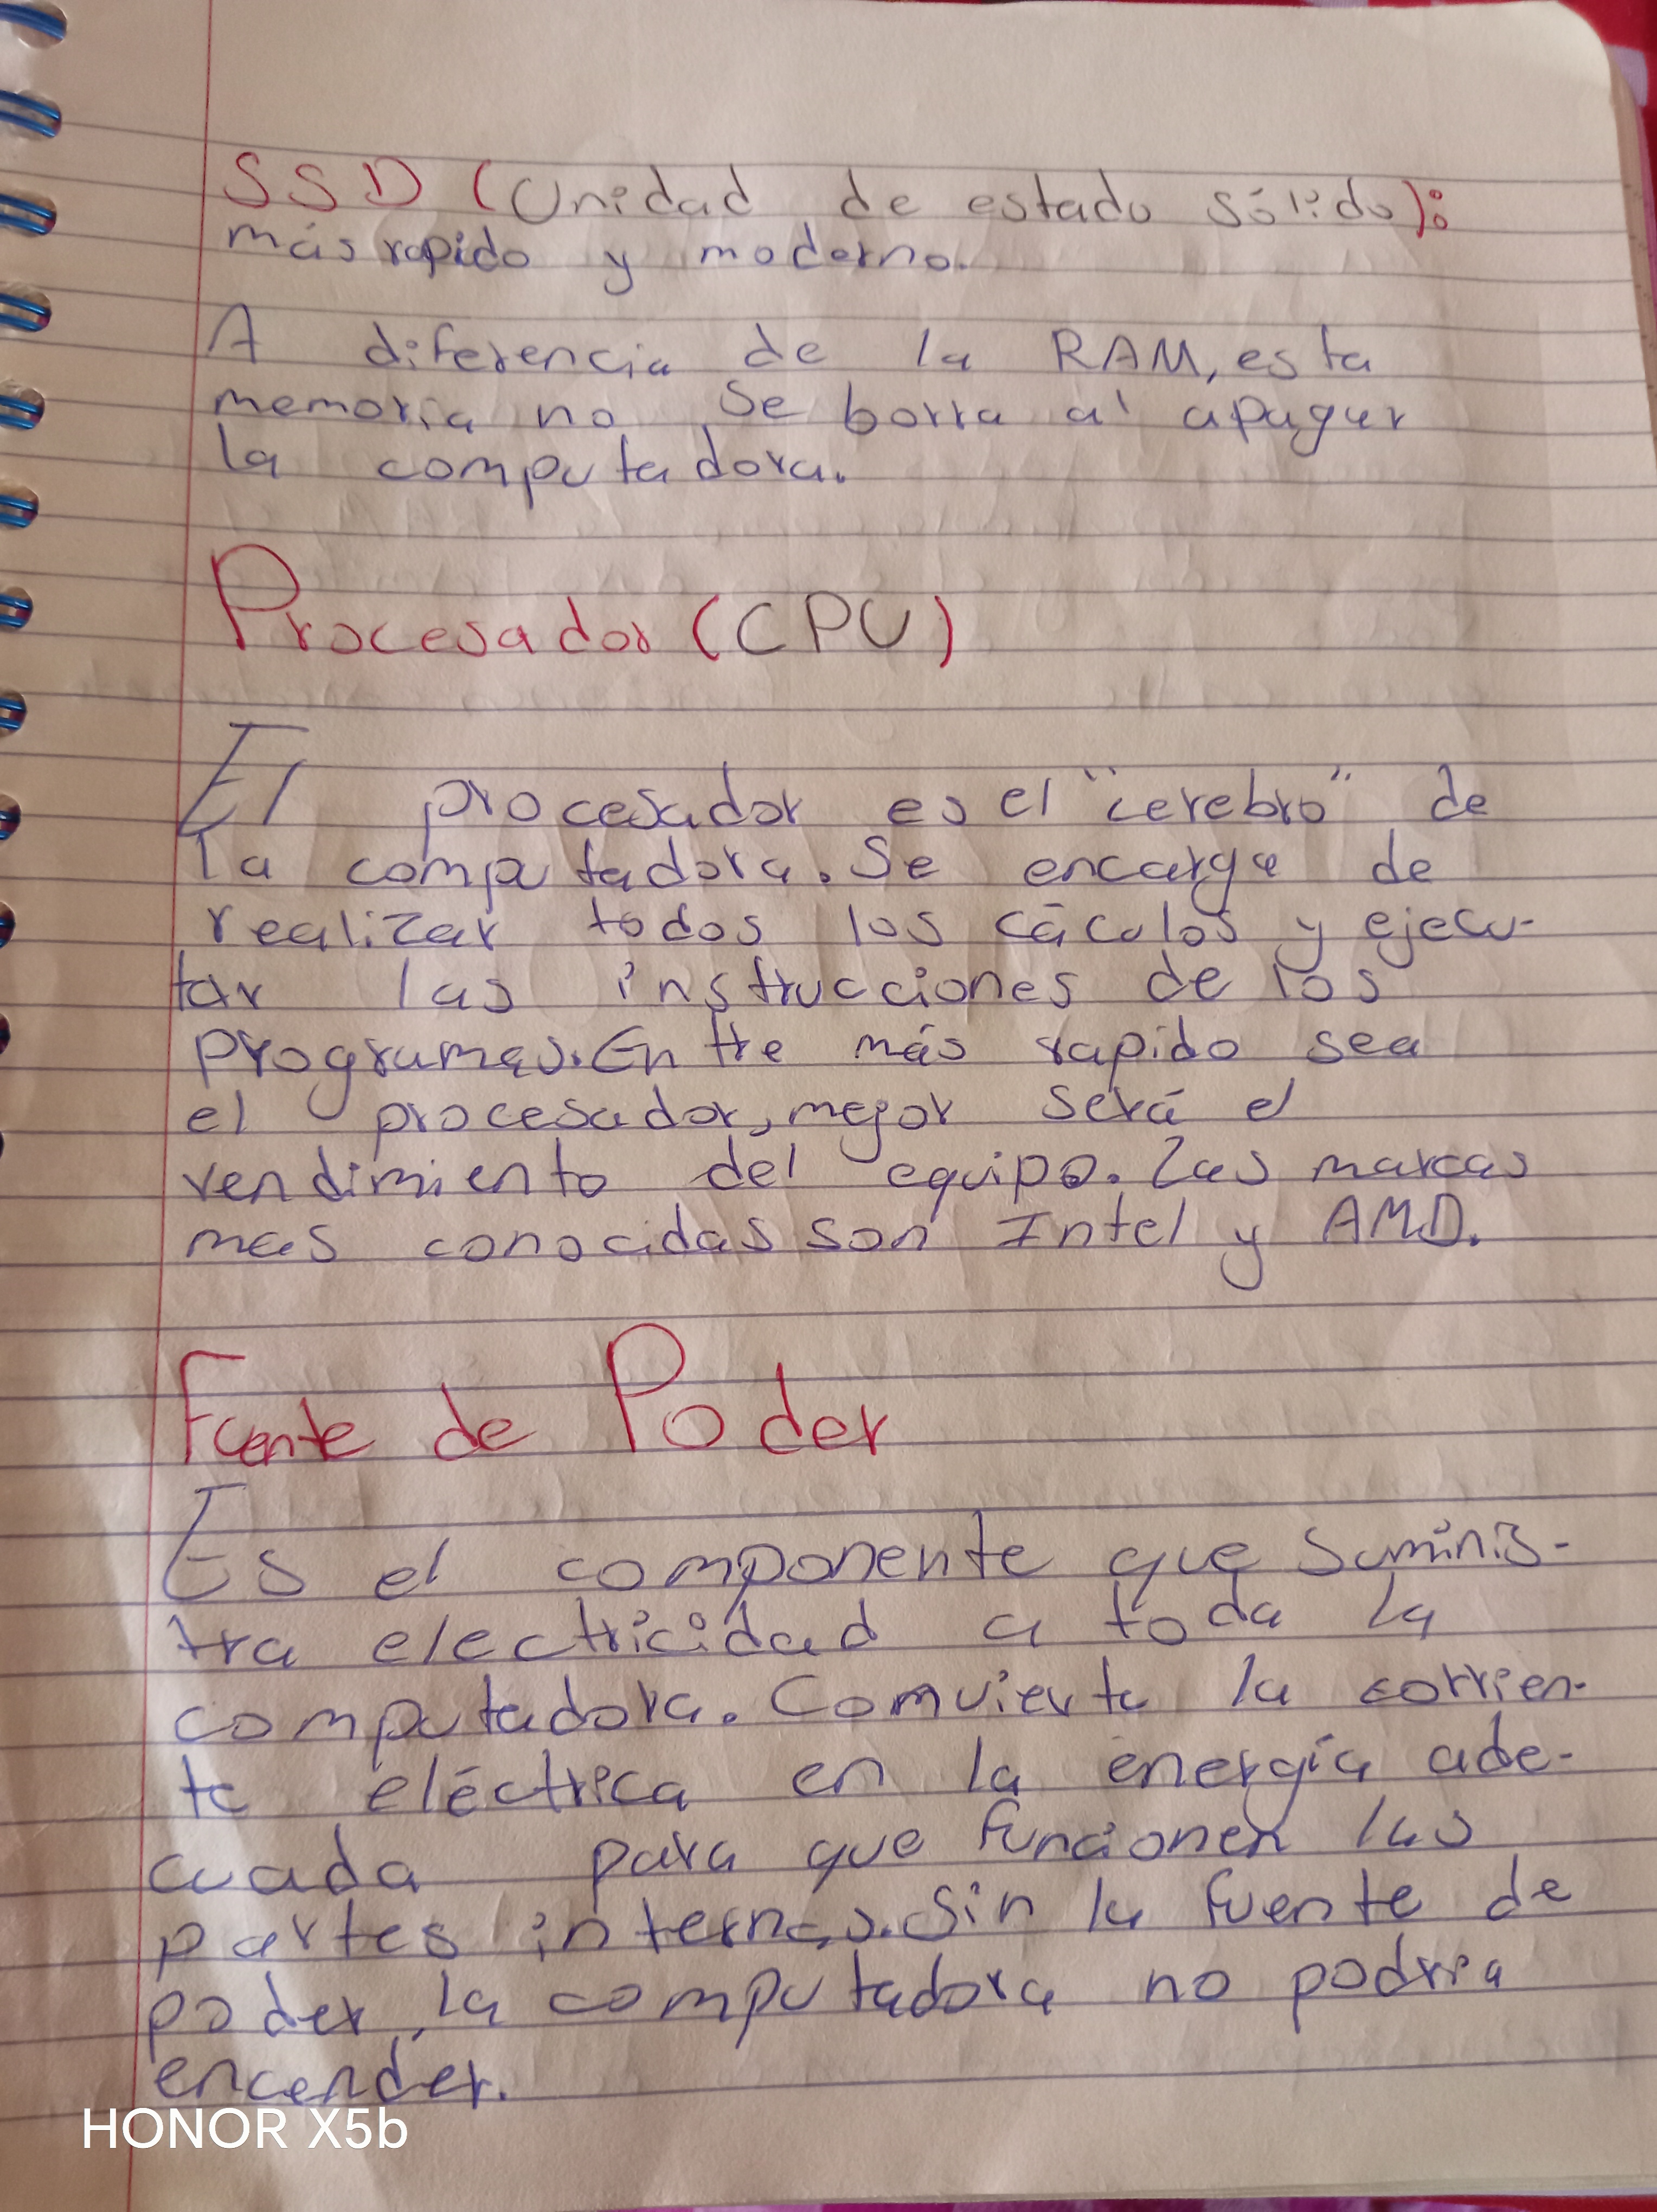 SSD (Unidad de estado sólido):
más rapido y moderno.
A diferencia de la RAM, esta
memoria no se borra al apagar
la computadora.
Procesador (CPU)
El procesador es el "cerebro" de
la computadora. Se encarga de
realizar todos los cáculos y ejecu-
tar las instrucciones de los
programas. Entre más rapido sea
el procesador, mejor será el
rendimiento del equipo. Las marcas
mas conocidas son Intel y AMD.
Fuente de Poder
Es el componente que suminis-
tra electricidad a toda la
computadora. Comvierte la corrien-
te eléctrica en la energía ade-
cuada para que funcionen las
partes internas. Sin la fuente de
poder, la computadora no podria
encender.
HONOR X5b